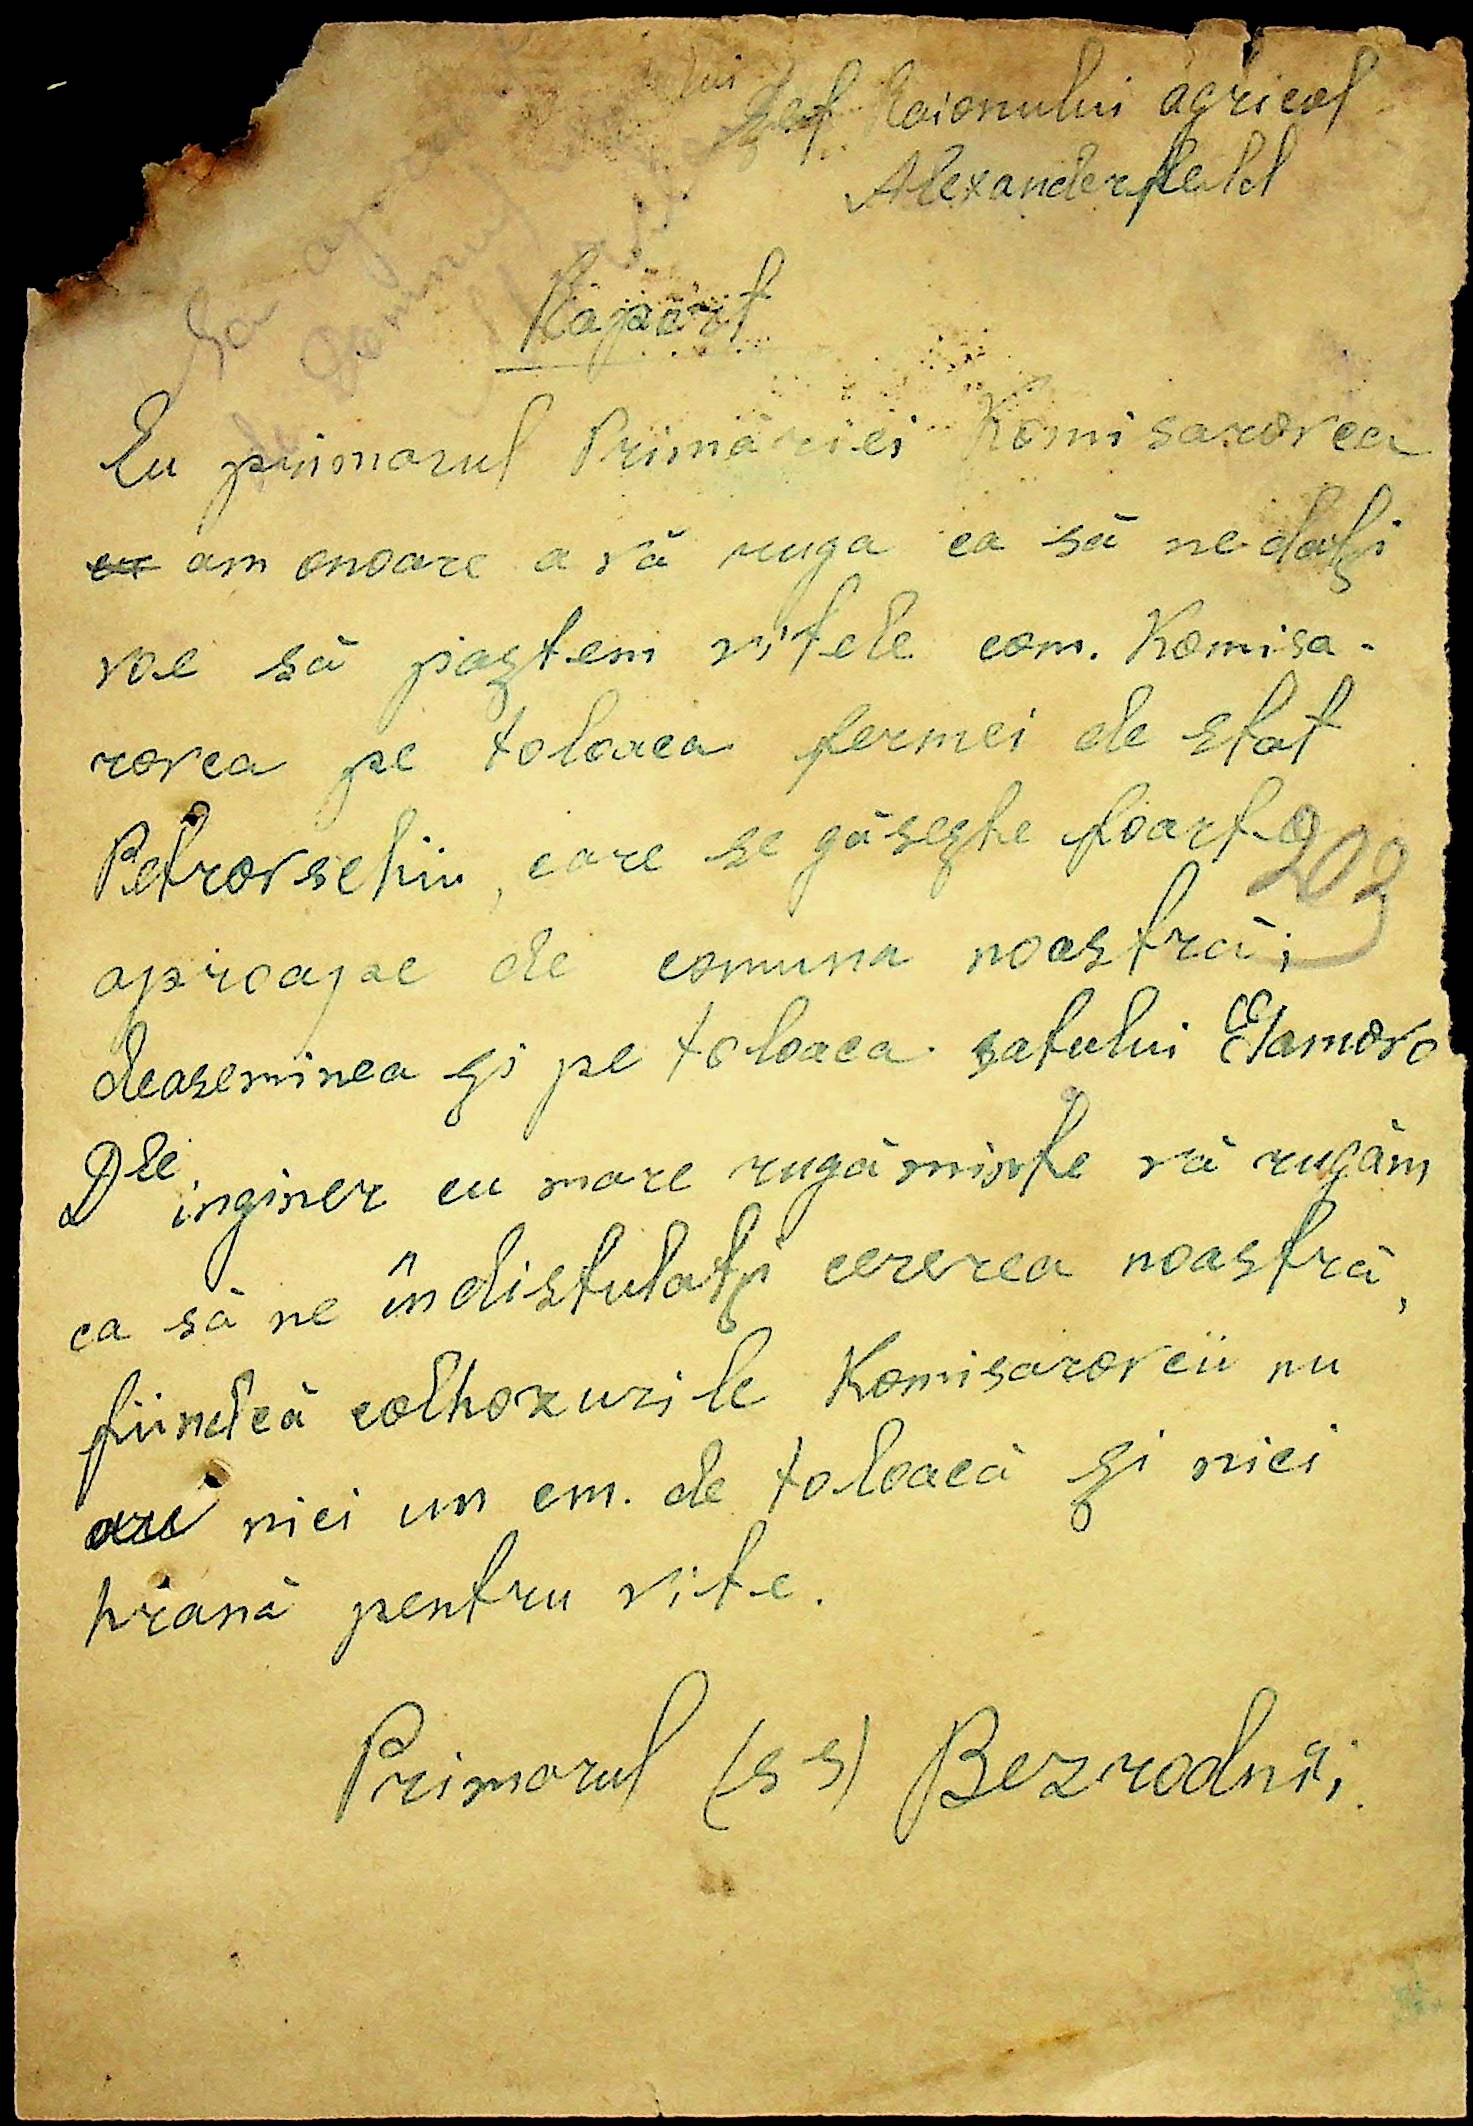 lui
Șef Raionului agricol
Alexanderfeld
Raport
Eu primarul Primăriei Komisarovca
am onoare a vă ruga ca să ne dați
voe să paștem vitele com. Komisa-
rovca pe toloaca fermei de stat
Petrovschii, care se găsește foarte
203
aproape de comuna noastră;
deaseminea și pe toloaca satului
Dle inginer cu mare rugăminte vă rugăm
ca să ne îndistulați cererea noastră,
fiindcă colhozurile Komisarovcii nu
are nici un cm. de toloacă și nici
hrană pentru vite.
Primarul (ss) Bezrodnîi.